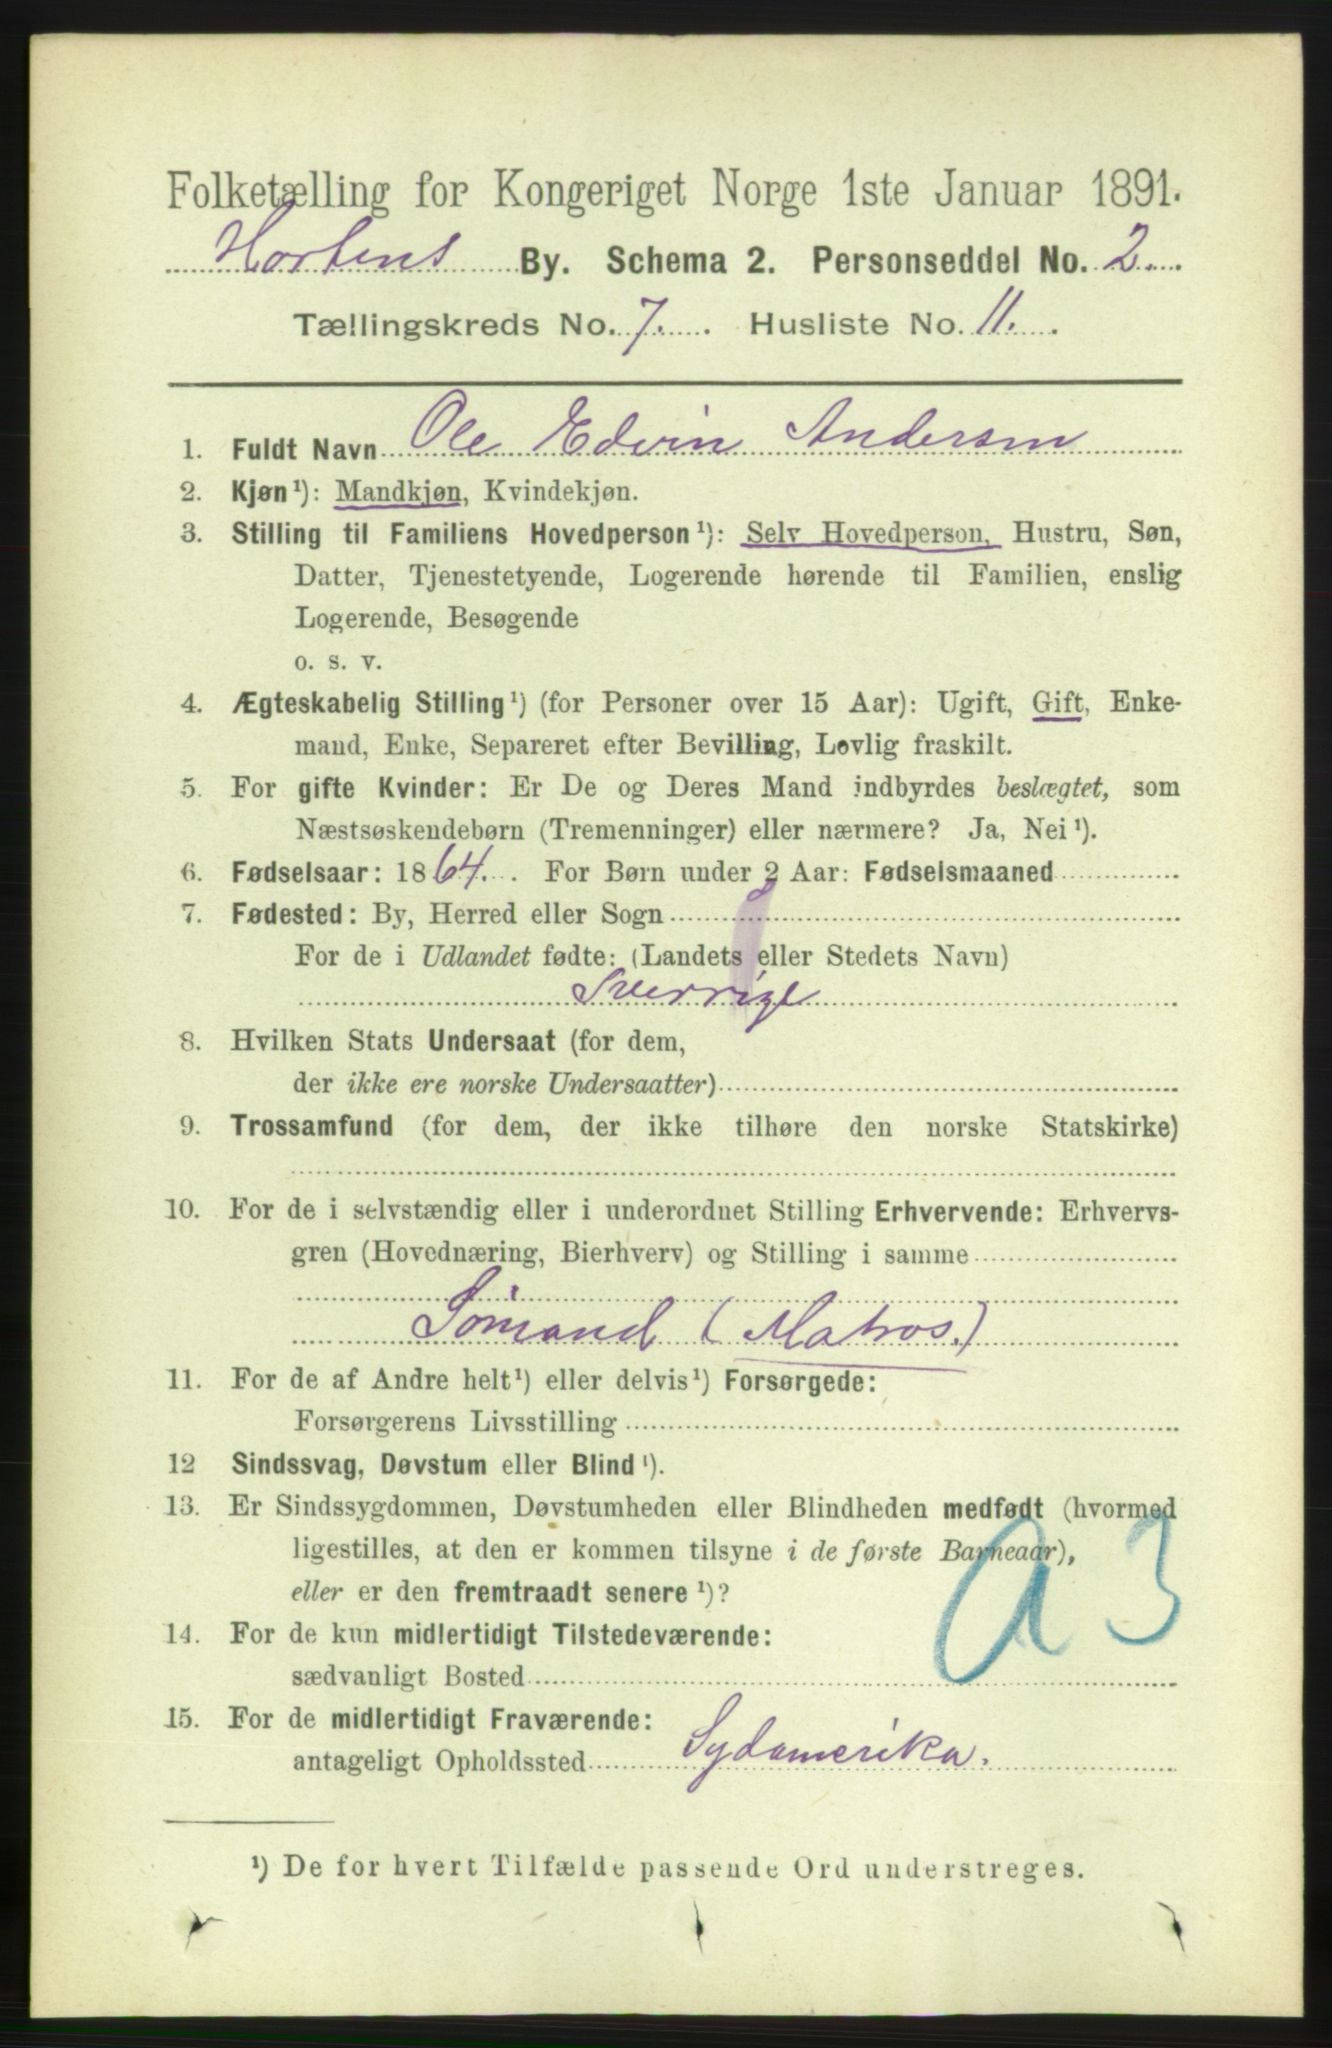 Folketælling for Kongeriget Norge 1ste Januar 1891.
Hortens By. Schema 2. Personseddel No. 2.
Tællingskreds No. 7. Husliste No. 11.
1. Fuldt Navn Ole Edvin Andersen
2. Kjøn¹): Mandkjøn, Kvindekjøn.
3. Stilling til Familiens Hovedperson¹): Selv Hovedperson, Hustru, Søn,
Datter, Tjenestetyende, Logerende hørende til Familien, enslig
Logerende, Besøgende
o. s. v.
4. Ægteskabelig Stilling¹) (for Personer over 15 Aar): Ugift, Gift, Enke-
mand, Enke, Separeret efter Bevilling, Lovlig fraskilt.
5. For gifte Kvinder: Er De og Deres Mand indbyrdes beslægtet, som
Næstsøskendebørn (Tremenninger) eller nærmere? Ja, Nei¹).
6. Fødselsaar: 1864. For Børn under 2 Aar: Fødselsmaaned
7. Fødested: By, Herred eller Sogn
For de i Udlandet fødte: (Landets eller Stedets Navn)
Sverrige
8. Hvilken Stats Undersaat (for dem,
der ikke ere norske Undersaatter)
9. Trossamfund (for dem, der ikke tilhøre den norske Statskirke)
10. For de i selvstændig eller i underordnet Stilling Erhvervende: Erhvervs-
gren (Hovednæring, Bierhverv) og Stilling i samme
Sømand (Matros.)
11. For de af Andre helt¹) eller delvis¹) Forsørgede:
Forsørgerens Livsstilling
12 Sindssvag, Døvstum eller Blind¹).
13. Er Sindssygdommen, Døvstumheden eller Blindheden medfødt (hvormed
ligestilles, at den er kommen tilsyne i de første Barneaar),
eller er den fremtraadt senere¹)?
a 3
14. For de kun midlertidigt Tilstedeværende:
sædvanligt Bosted
15. For de midlertidigt Fraværende:
antageligt Opholdssted Sydamerika.
¹) De for hvert Tilfælde passende Ord understreges.